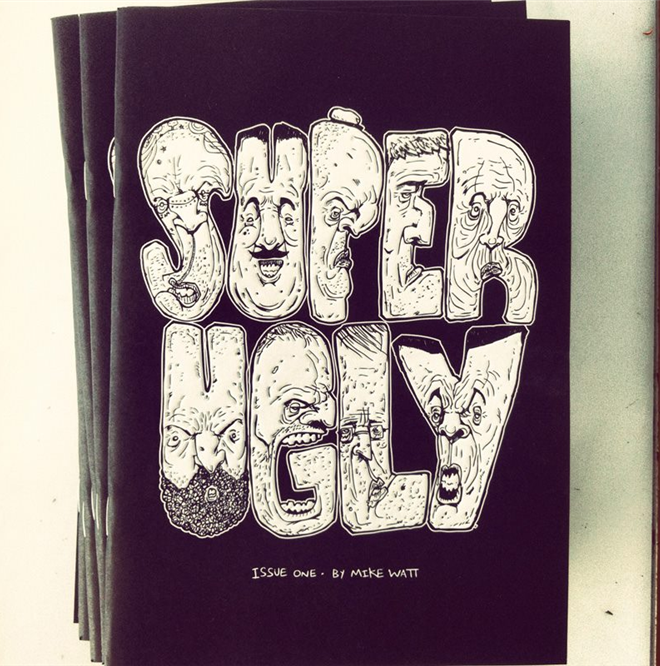 SUPER
UGLY
ISSUE ONE - BY MIKE WATT